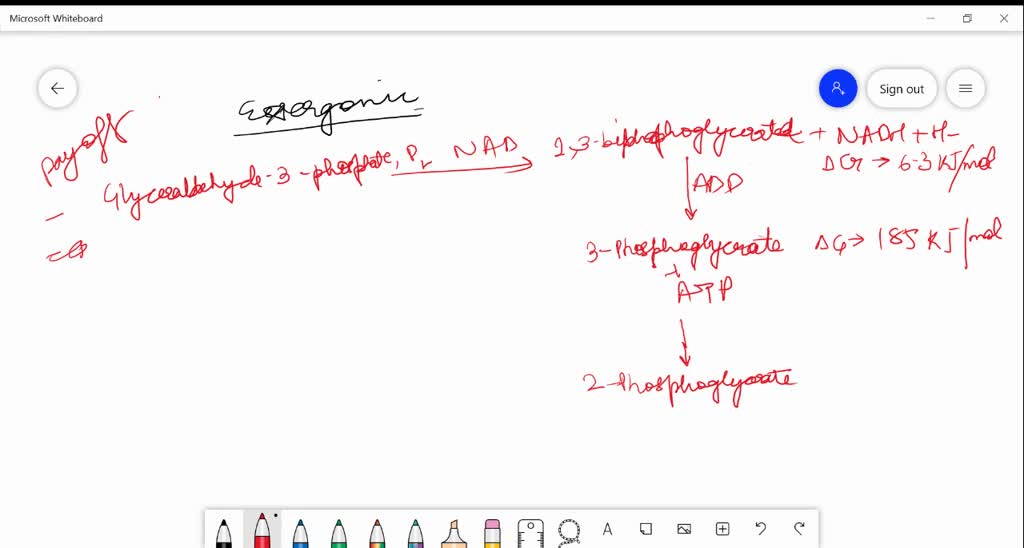 Microsoft Whiteboard
Sign out
Exergonic
payoff
Glyceraldehyde-3-phosphate, Pi NAD → 1,3-biphosphoglycerate + NADH + H-
ΔG → 6.3 KJ/mol
ADP
3-Phosphoglycerate ΔG → 185 KJ/mol
+
ATP
2-Phosphoglycerate
A